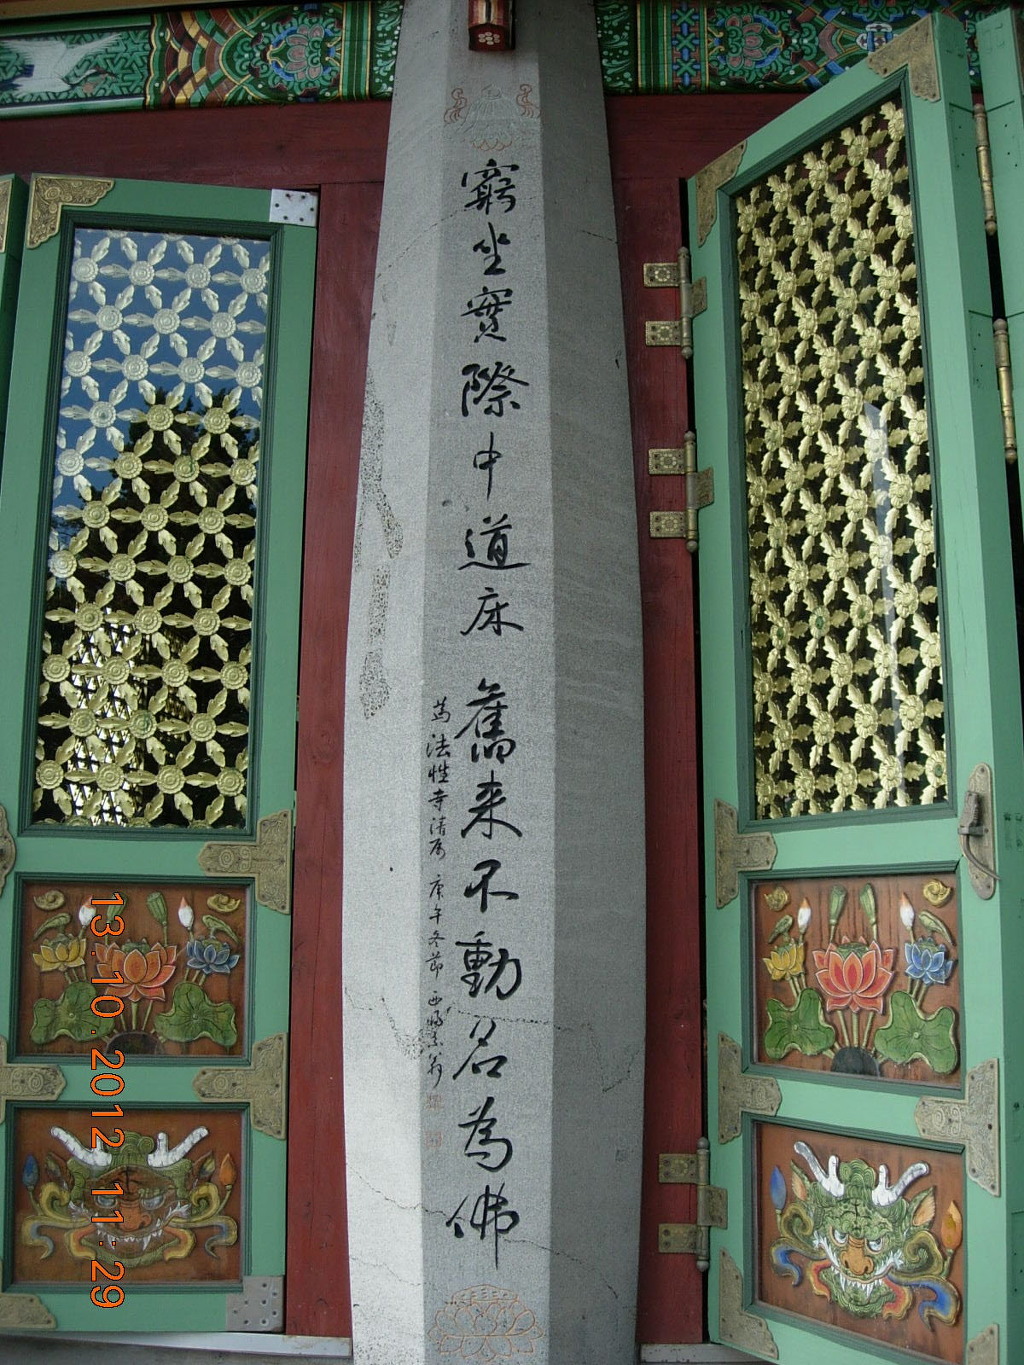 窮坐實際中道床 舊来不動名為佛
為法性寺清居 庚午冬節
13.10.2012 11:29